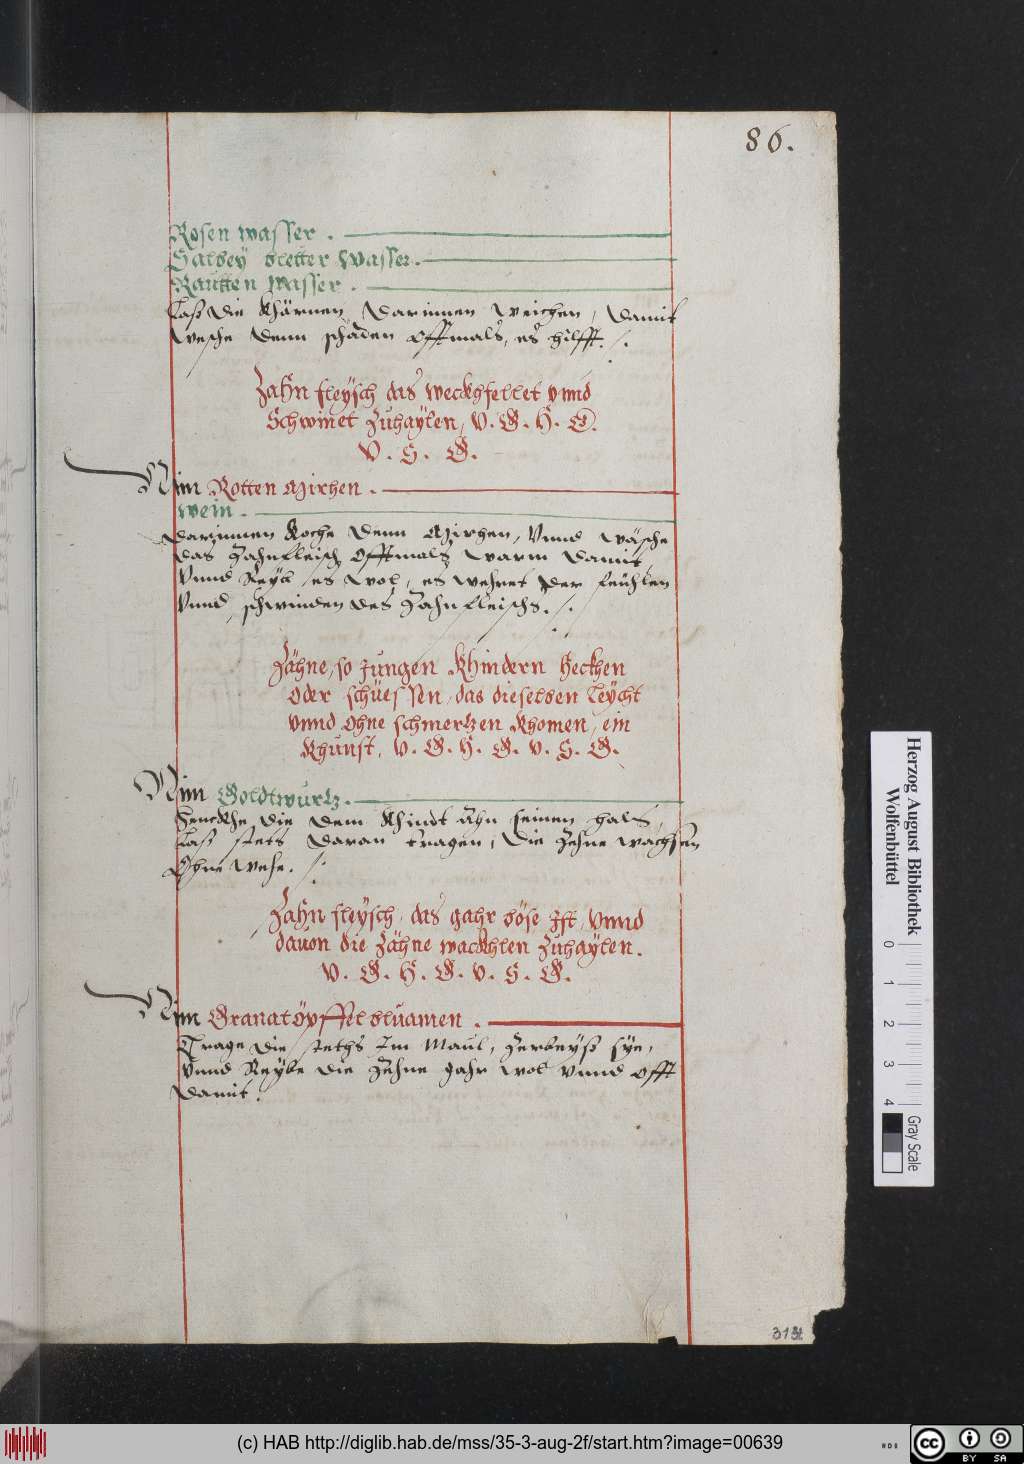 86.
Rosen wasser.
Salbey bletter Wasser.
Rautten wasser.
Laß die Khärnen darinnen weichen, damit
wesche denn schaden offtmals, es hilfft.
Zahn fleysch das weckhfellet vnnd
Schwinet Zuhaylen, V. G. H. G.
V. S. G.
Nim Rotten Mirhen.
wein.
darinnen Koche denn Mirhen, Vnnd wäsche
das Zahnfleisch offtmals warm damit
Vnnd Reyb es wol, es wehret der feühlen
Vnnd schwinden des Zahnfleischs.
Zähne, so Jungen Khindern heckhen
oder schüessen, das dieselben leycht
vnnd ohne schmertzen Khomen, ein
Khunst, V. G. H. G. V. S. G.
Nim Goldtwurtz.
henckhe die dem Khindt ahn seinen hals,
Laß stets daran tragen, die Zehne wachsen
Ohne wehe.
Zahn fleysch, das gahr böse Jst, Vnnd
dauon die Zähne wackhlen Zuhaylen.
V. G. H. G. V. S. G.
Nim Granatöpffel bluamen.
Trage die steths Im Maul, Zerbeyß sye,
Vnnd Reybe die Zehne gahr wol vnnd offt
damit.
Herzog August Bibliothek
Wolfenbüttel
0 1 2 3 4
Gray Scale
(c) HAB http://diglib.hab.de/mss/35-3-aug-2f/start.htm?image=00639
cc BY SA